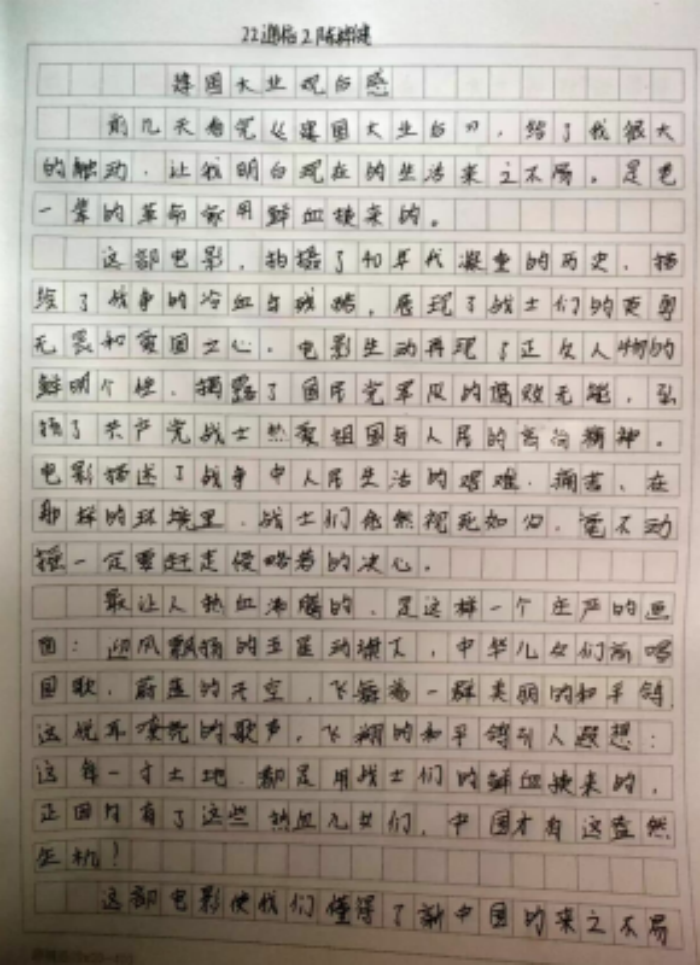 22通信2陈
建国大业观后感
前几天看完《建国大业后》，给了我很大
的触动，让我明白现在的生活来之不易。是老
一辈的革命家用鲜血换来的。
这部电影，拍摄了40年代凝重的历史，描
绘了战争的冷血与残酷，展现了战士们的英勇
无畏和爱国之心。电影生动再现了正反人物的
鲜明个性，揭露了国民党军队的腐败无能，弘
扬了共产党战士热爱祖国与人民的高尚精神。
电影描述了战争中人民生活的艰难、痛苦，在
那样的环境里，战士们依然视死如归，毫不动
摇一定要赶走侵略者的决心。
最让人热血沸腾的，是这样一个庄严的画
面：迎风飘扬的五星动旗下，中华儿女们高唱
国歌，蔚蓝的天空，飞舞着一群美丽的和平鸽，
这悦耳的歌声，飞翔的和平鸽引人遐想：
这每一寸土地，都是用战士们的鲜血换来的，
正因为有了这些热血儿女们，中国才有这盎然
生机！
这部电影使我们懂得了新中国的来之不易